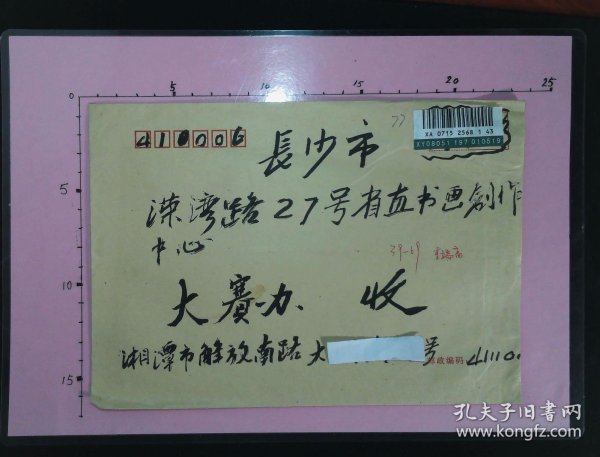 5 10 15 20 25
0
5
10
15
410006
77
XA 0715 2568 1 43
XY08051 197 010519
長沙市
溁湾路27号省直书画創作
中心
39-69
大赛办 收
湘潭市解放南路大
号
邮政编码 41110
孔夫子旧书网
www.kongfz.com